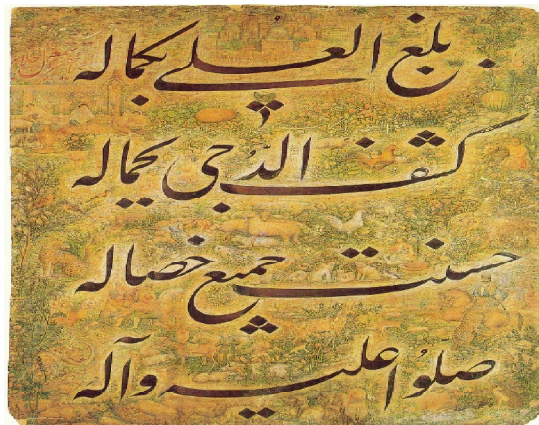 بلغ العلی بکماله
کشف الدُجی بجماله
حسنت جمیع خصاله
صلوُا علیه وآله